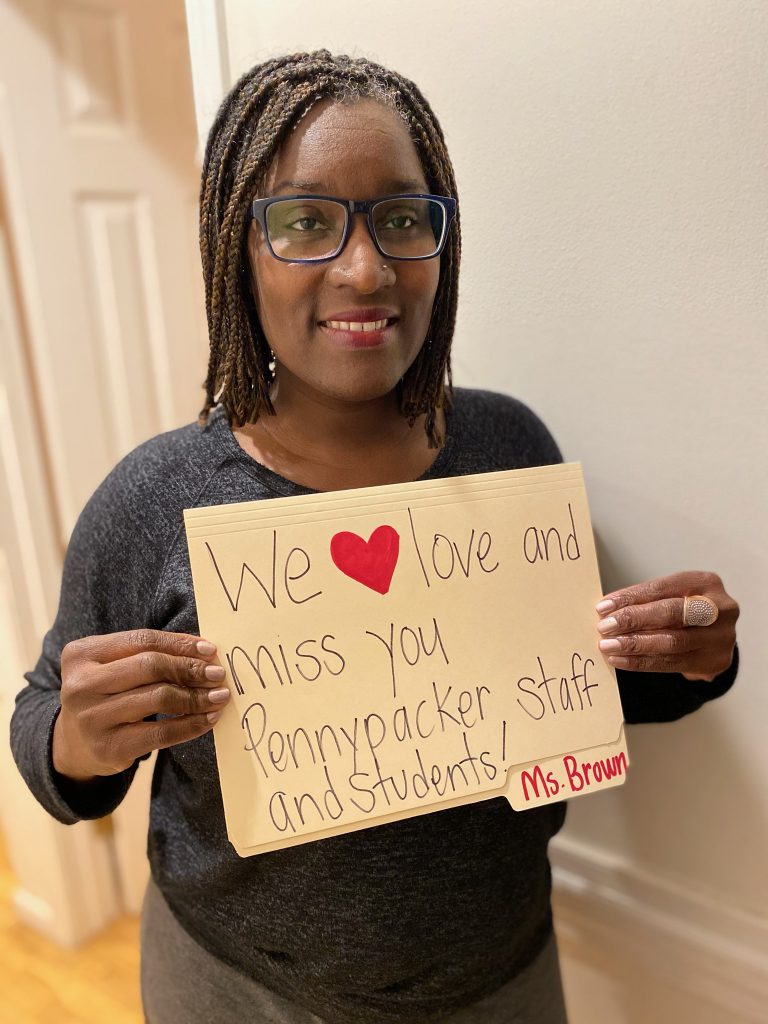 We love and
miss you
Pennypacker staff
and students!
Ms. Brown